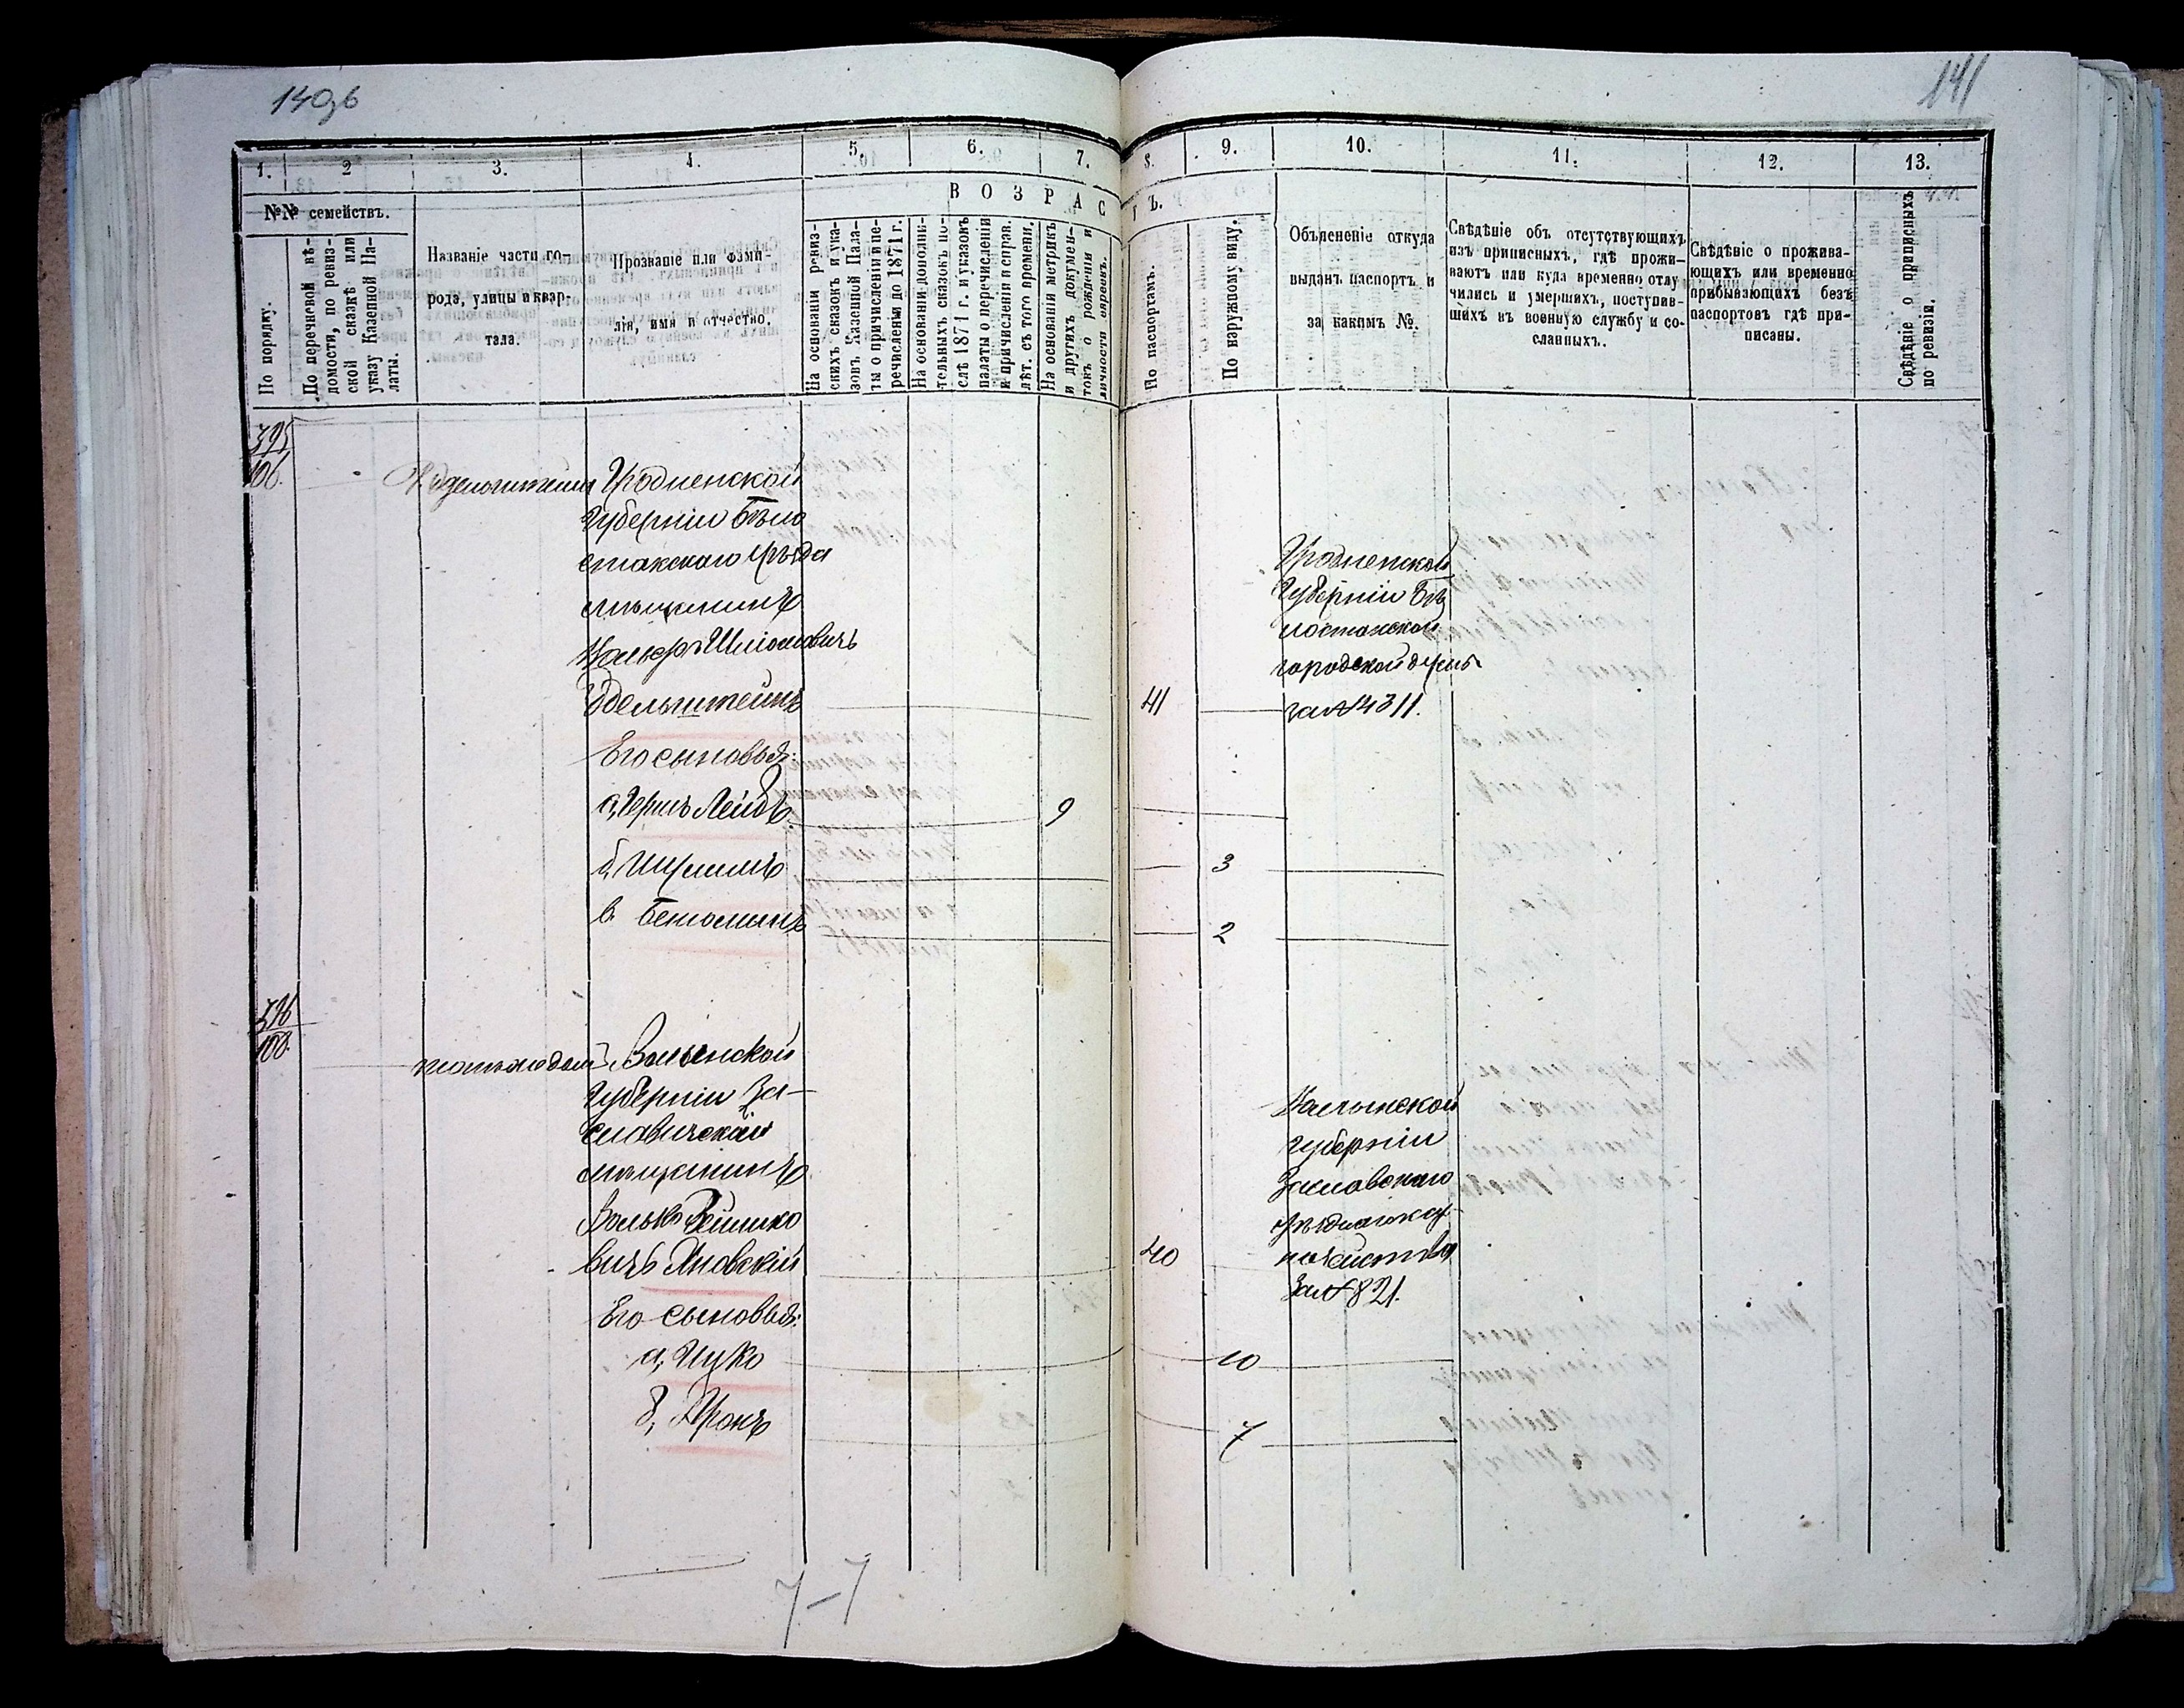 140об
141
1.
2
3.
4.
5.
6.
7.
8.
9.
10.
11.
12.
13.
№№ семействъ.
ВОЗРАСТЪ.
По порядку.
По перечневой вѣ-
домости, по ревиз-
ской сказкѣ или
указу Казенной Па-
латы.
Названіе части го-
рода, улицы и квар-
тала.
Прозваніе или фами-
лія, имя и отчество.
На основаніи ревиз-
скихъ сказокъ и ука-
зовъ Казенной Пала-
ты о причисленіи и пе-
речисленіи до 1871 г.
На основаніи дополни-
тельныхъ сказокъ по-
слѣ 1871 г. и указовъ
палаты о перечисленіи
и причисленіи и справ.
лѣт. съ того времени.
На основаніи метрикъ
и другихъ докумен-
товъ о рожденіи и
личности евреевъ.
По паспортамъ.
По наружному виду.
Объясненіе откуда
выданъ паспортъ и
за какимъ №.
Свѣдѣніе объ отсутствующихъ
изъ приписныхъ, гдѣ прожи-
ваютъ или куда временно отлу
чились и умершихъ, поступив-
шихъ въ военную службу и со-
сланныхъ.
Свѣдѣніе о прожива-
ющихъ или временно
прибывающихъ безъ
паспортовъ гдѣ при-
писаны.
Свѣдѣніе о приписныхъ
по ревизіи.
395
106.
Гродненской
Губерніи Бѣло
стокскаго Уѣзда
мѣщанинъ
Шліомовичъ
Эдельштейнъ
41
Гродненской
Губерніи Бѣ
лостокской
городской думы
за № 4311.
Его сыновья:
а, Гершъ Лейбъ
9
б,
3
в. Беньоминъ
2
396
108.
Волынской
Губерніи За-
славичскай
мѣщанинъ
Волько
вичъ Яновскій
40
Волынской
губерніи
Заславскаго
уѣзднаго каз
начейства
За № 821.
Его сыновья:
а, Ицко
10
б, Аронъ
7
7-7